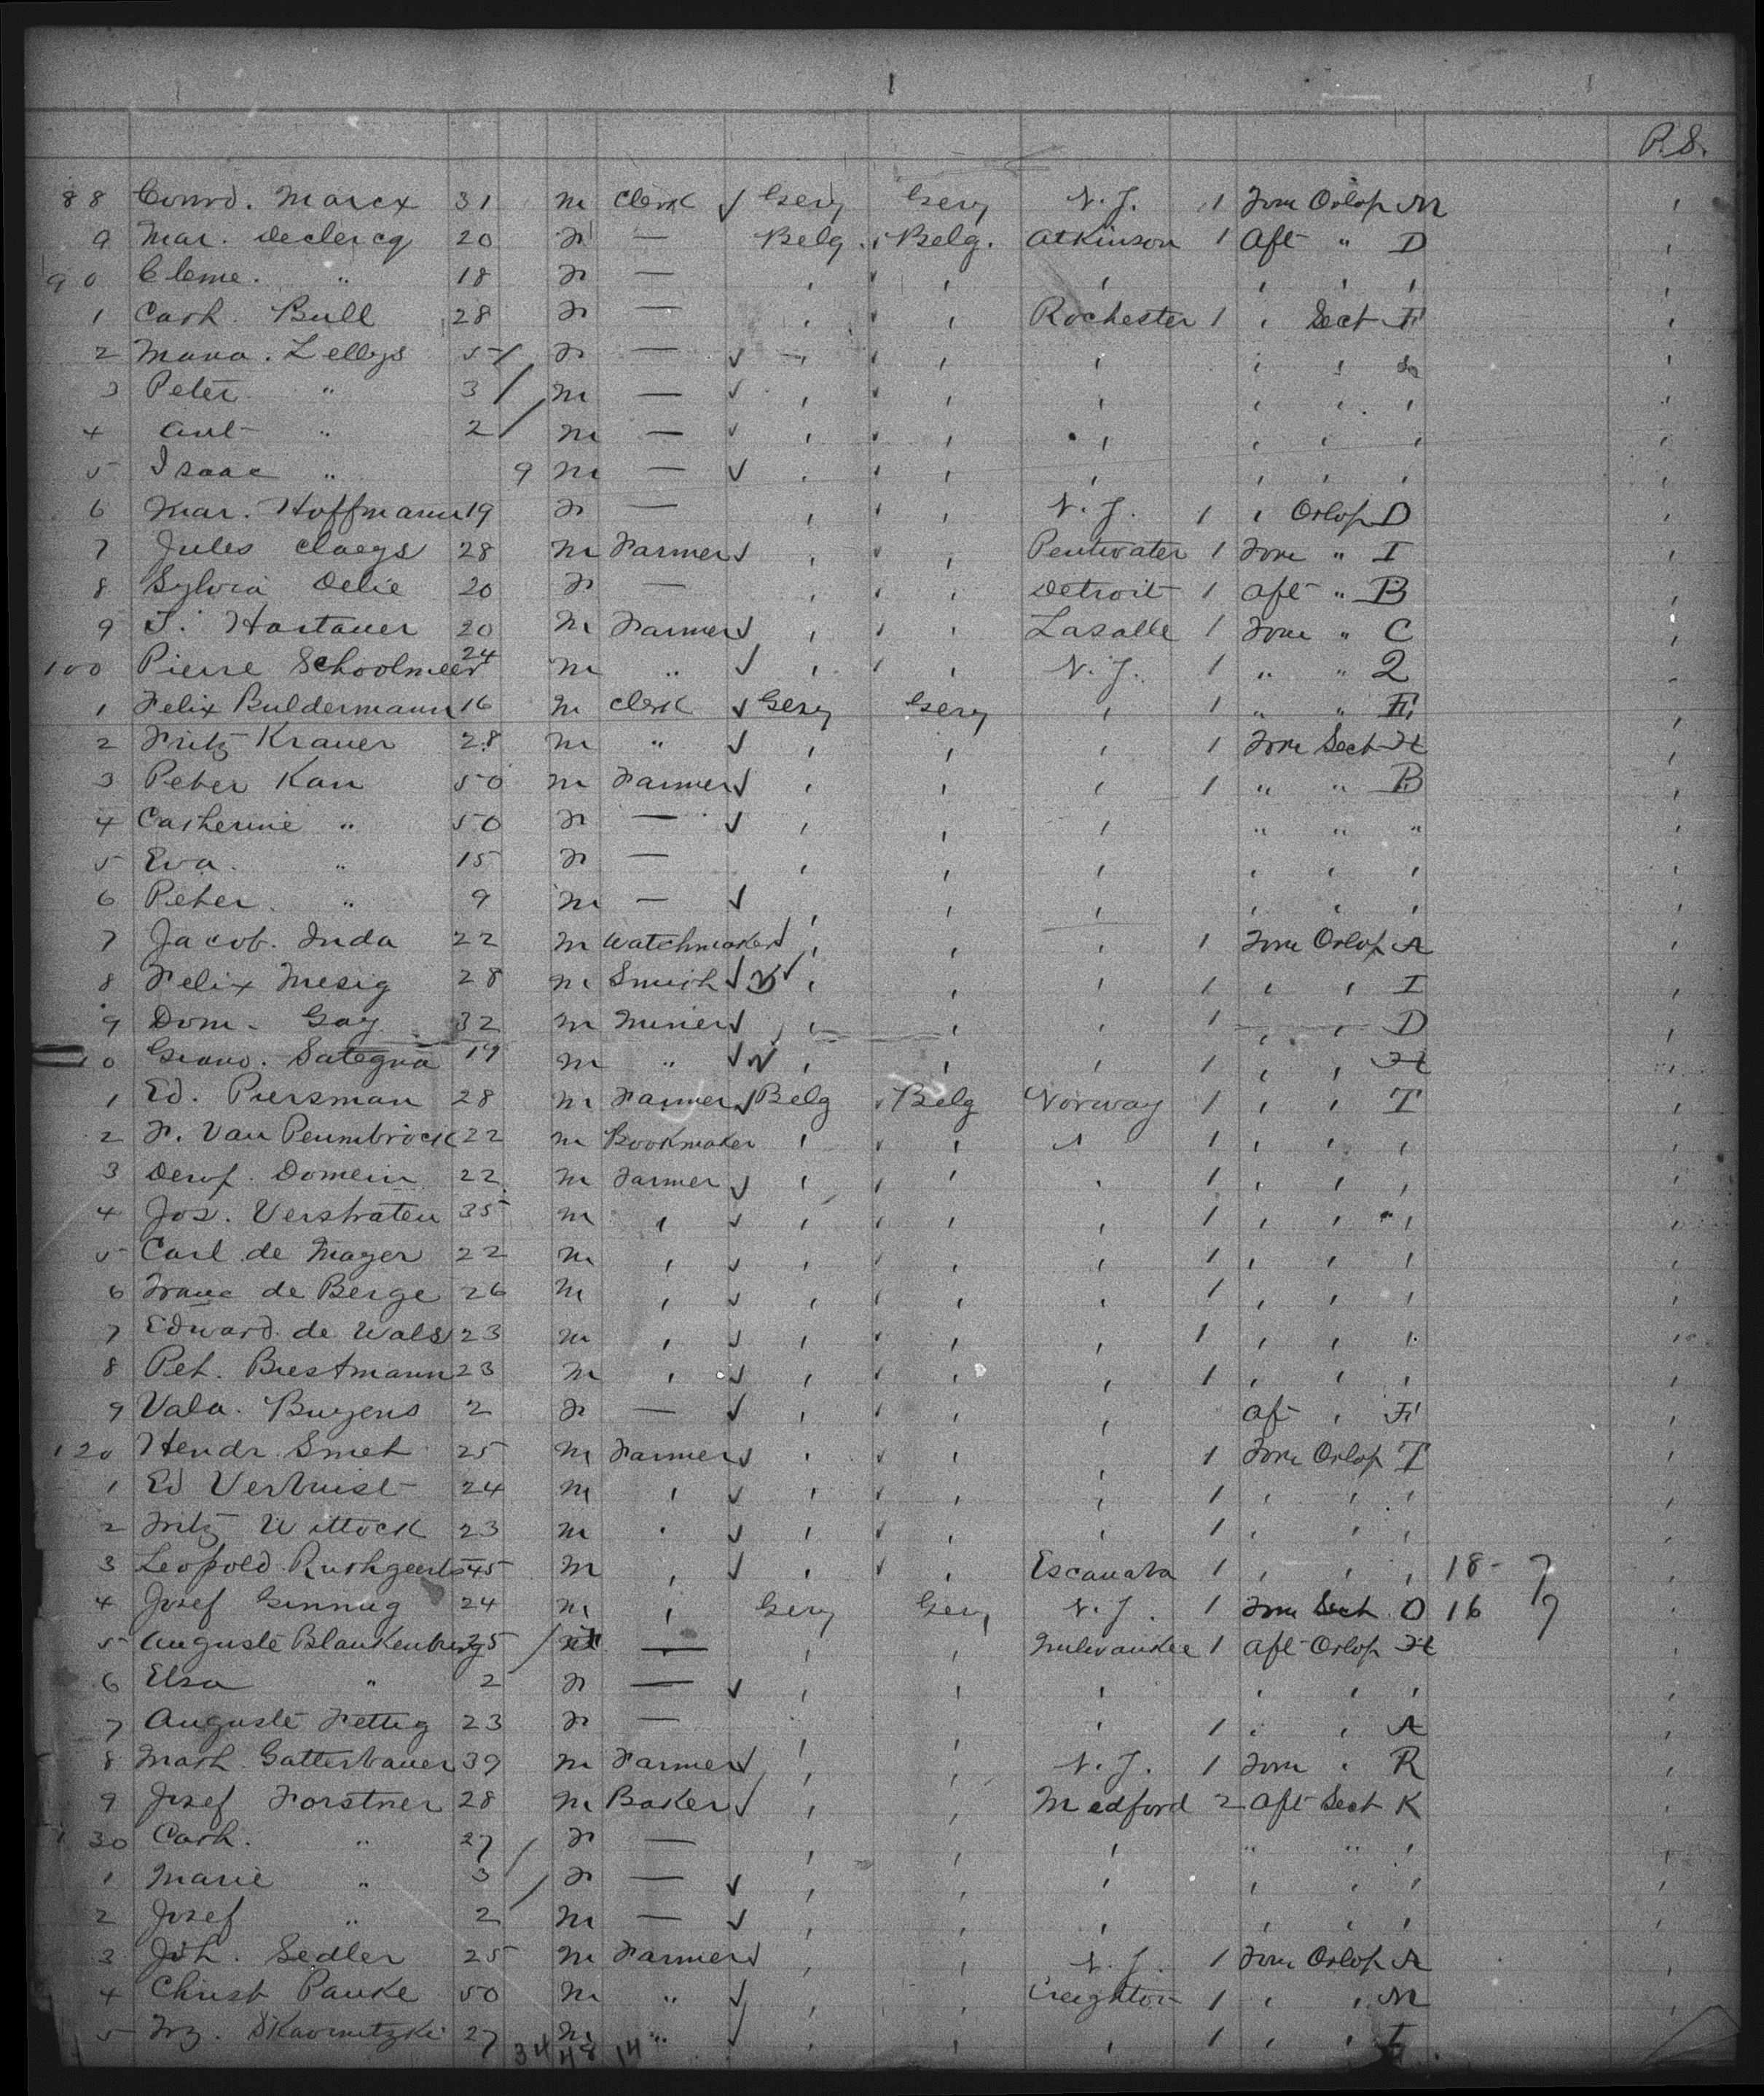 P.S.
88 Conrd. Marcx 31 m Clerk ✓ Gery Gery N.J. 1 Forw Orlop M '
9 Mar. Declercq 20 f — Belg. ' Belg. Atkinson 1 Aft " D '
90 Cleme. " 18 f — ' ' ' ' ' ' ' '
1 Cath. Bull 28 f — ' ' ' Rochester 1 ' Sect F '
2 Lellys 5 / f — ✓ ' ' ' ' ' ' '
3 Peter " 3 / m — ✓ ' ' ' ' ' ' ' '
4 Ant " 2 / m — ✓ ' ' ' ' ' ' ' '
5 Isaac " 9 m — ✓ ' ' ' ' ' ' ' '
6 Mar. Hoffmann 19 f — ' ' ' N.J. 1 ' Orlop D '
7 Jules Claeys 28 m Farmer ✓ ' ' ' Pentwater 1 Forw " I '
8 Sylvia Delie 20 f — ' ' ' Detroit 1 Aft " B '
9 Hartauer 20 m Farmer ✓ ' ' ' Lasalle 1 Forw " C '
100 Pierre Schoolmeer 24 m " ✓ ' ' ' N.J. 1 " " Q
1 Felix Buldermann 16 m Clerk ✓ Gery Gery ' 1 " " E '
2 Fritz Krauer 28 m " ✓ ' ' ' 1 Forw Sect H '
3 Peter Kan 50 m Farmer ✓ ' ' ' 1 " " B '
4 Catherine " 50 f — ✓ ' ' ' " " " '
5 Eva. " 15 f — ' ' ' ' ' ' '
6 Peter. " 9 m — ✓ ' ' ' ' ' ' '
7 Jacob. Inda 22 m Watchmaker ✓ ' ' ' 1 Forw Orlop A '
8 Felix Mesig 28 m Smith ✓ ' ' ' 1 ' ' I '
9 Dom. Gay 32 m Miner ✓ ' ' ' 1 ' ' D '
10 Sategna 19 m " ✓ ' ' ' 1 ' ' H '
1 Ed. Piersman 28 m Farmer ✓ Belg ' Belg Norway 1 ' ' T '
2 F. Van Peumbrock 22 m Bookmaker ' ' ' ' 1 ' ' ' '
3 Domein 22 m Farmer ✓ ' ' ' ' 1 ' ' ' '
4 Jos. Verstraten 35 m ' ✓ ' ' ' ' 1 ' ' ' '
5 Carl de Mayer 22 m ' ✓ ' ' ' ' 1 ' ' ' '
6 Franc de Berge 26 m ' ✓ ' ' ' ' 1 ' ' ' '
7 Edward de Wals 23 m ' ✓ ' ' ' ' 1 ' ' ' '
8 Pet. Biestmann 23 m ' ✓ ' ' ' ' 1 ' ' ' '
9 Vala. Buyens 2 f — ✓ ' ' ' ' Af ' F '
120 Hendr. Smet 25 m Farmer ✓ ' ' ' ' 1 Forw Orlop T '
1 Ed Verbuist 24 m ' ✓ ' ' ' ' 1 ' ' ' '
2 Fritz Wittock 23 m ' ✓ ' ' ' ' 1 ' ' ' '
3 Leopold Rushgeerts 45 m ' ✓ ' ' ' Escanaba 1 ' ' ' 18 - 7 '
4 Josef Ginnug 24 m ' Gery Gery N.J. 1 Forw Sect O 16 7 '
5 Auguste Blankenburg 25 / — ' ' Milwaukee 1 Aft Orlop H '
6 Elsa " 2 f — ✓ ' ' ' ' ' ' '
7 Auguste Fettig 23 f — ' ' ' 1 ' ' A '
8 Math. Gatterbauer 39 m Farmer ✓ ' ' N.J. 1 Forw ' R '
9 Josef Forstner 28 m Baker ✓ ' ' Medford 2 Aft Sect K '
130 Cath. " 27 / f — ' ' ' " " ' '
1 Marie " 3 / f — ✓ ' ' ' ' ' ' '
2 Josef " 2 m — ✓ ' ' ' ' ' ' '
3 Joh. Sedler 25 m Farmer ✓ ' ' N.J. 1 Forw Orlop A '
4 Christ Pauke 50 m " ✓ ' ' Creighton 1 ' ' M '
5 Frz. Skavnitzki 27 m " ✓ ' ' ' 1 ' ' I '
34 48 14